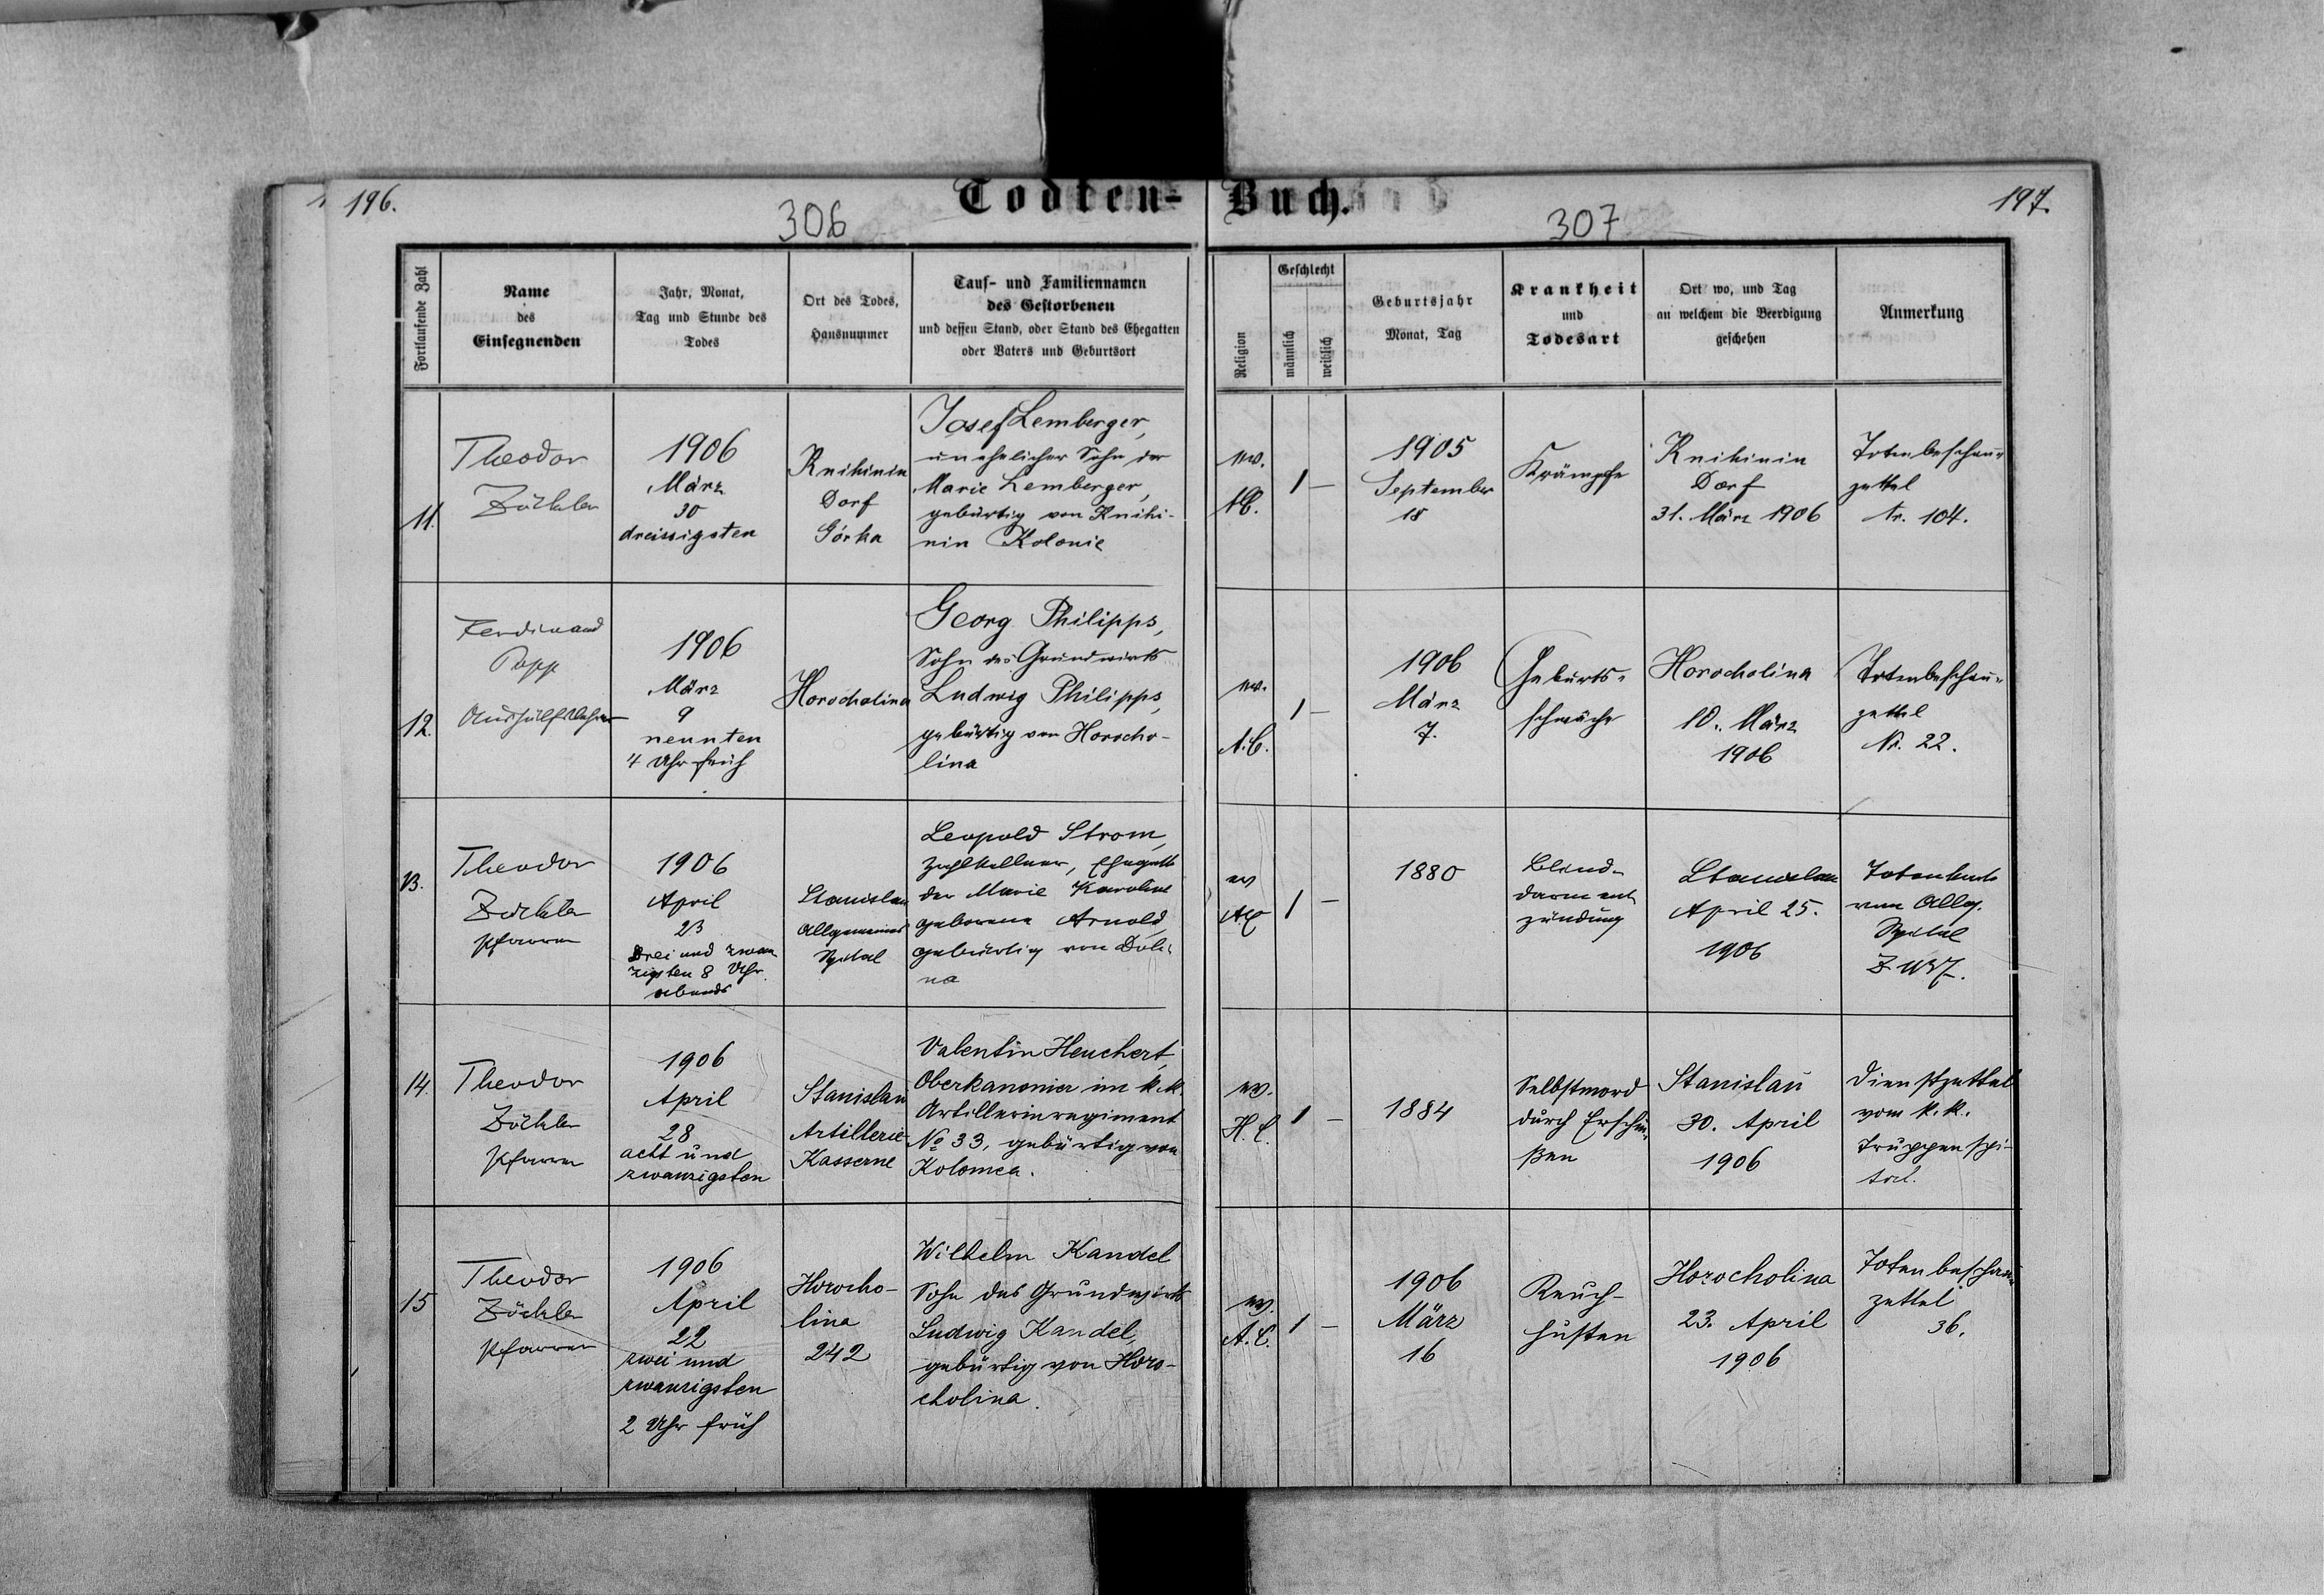 196.
Todten-
Buch.
197.
306
307
Fortlaufende Zahl
Name
des
Einsegnenden
Jahr, Monat,
Tag und Stunde des
Todes
Ort des Todes,
Hausnummer
Tauf- und Familiennamen
des Gestorbenen
und dessen Stand, oder Stand des Ehegatten
oder Vaters und Geburtsort
Religion
Geschlecht
männlich
weiblich
Geburtsjahr
Monat, Tag
Krankheit
und
Todesart
Ort wo, und Tag
an welchem die Beerdigung
geschehen
Anmerkung
11.
Theodor
Zöckler
1906
März
30
dreissigsten
Knihinin
Dorf
Górka
Josef Lemberger,
unehelicher Sohn der
Marie Lemberger,
gebürtig von Knihi-
nin Kolonie
ev.
AC.
1
—
1905
September
18
Krämpfe
Knihinin
Dorf
31. März 1906
Totenbeschau-
zettel
Nr. 104.
12.
Ferdinand
Popp
Aushülfslehrer
1906
März
9
neunten
4 Uhr früh
Horocholina
Georg Philipps,
Sohn des Grundwirts
Ludwig Philipps,
gebürtig von Horocho-
lina
ev.
A.C.
1
—
1906
März
7.
Geburts-
schwäche
Horocholina
10. März
1906
Totenbeschau-
zettel
Nr. 22.
13.
Theodor
Zöckler
Pfarrer
1906
April
23
Drei und zwan
zigsten 8 Uhr
abends
Stanislau
Allgemeines
Spital
Leopold Strom,
Zahlkellner, Ehegatte
der Marie Karoline
geborene Arnold,
gebürtig von Doli-
na
ev
AC
1
—
1880
Blind-
darment
zündung
Stanislau
April 25.
1906
vom Allg.
Spital
14.
Theodor
Zöckler
Pfarrer
1906
April
28
acht und
zwanzigsten
Stanislau
Artillerie-
Kasserne
Valentin Heuchert,
Oberkanonier im k.k.
Artillerieregiment
No 33, gebürtig von
Kolomea.
ev.
H.C.
1
—
1884
Selbstmord
durch Erschie-
ßen
Stanislau
30. April
1906
Dienstzettel
vom k.k.
Truppenspi-
tal.
15
Theodor
Zöckler
Pfarrer
1906
April
22
zwei und
zwanzigsten
2 Uhr früh
Horocho-
lina
242
Wilhelm Kandel
Sohn des Grundwirts
Ludwig Kandel,
gebürtig von Horo-
cholina.
ev.
A.C.
1
—
1906
März
16
Keuch-
husten
Horocholina
23. April
1906
Totenbeschau-
zettel
36.